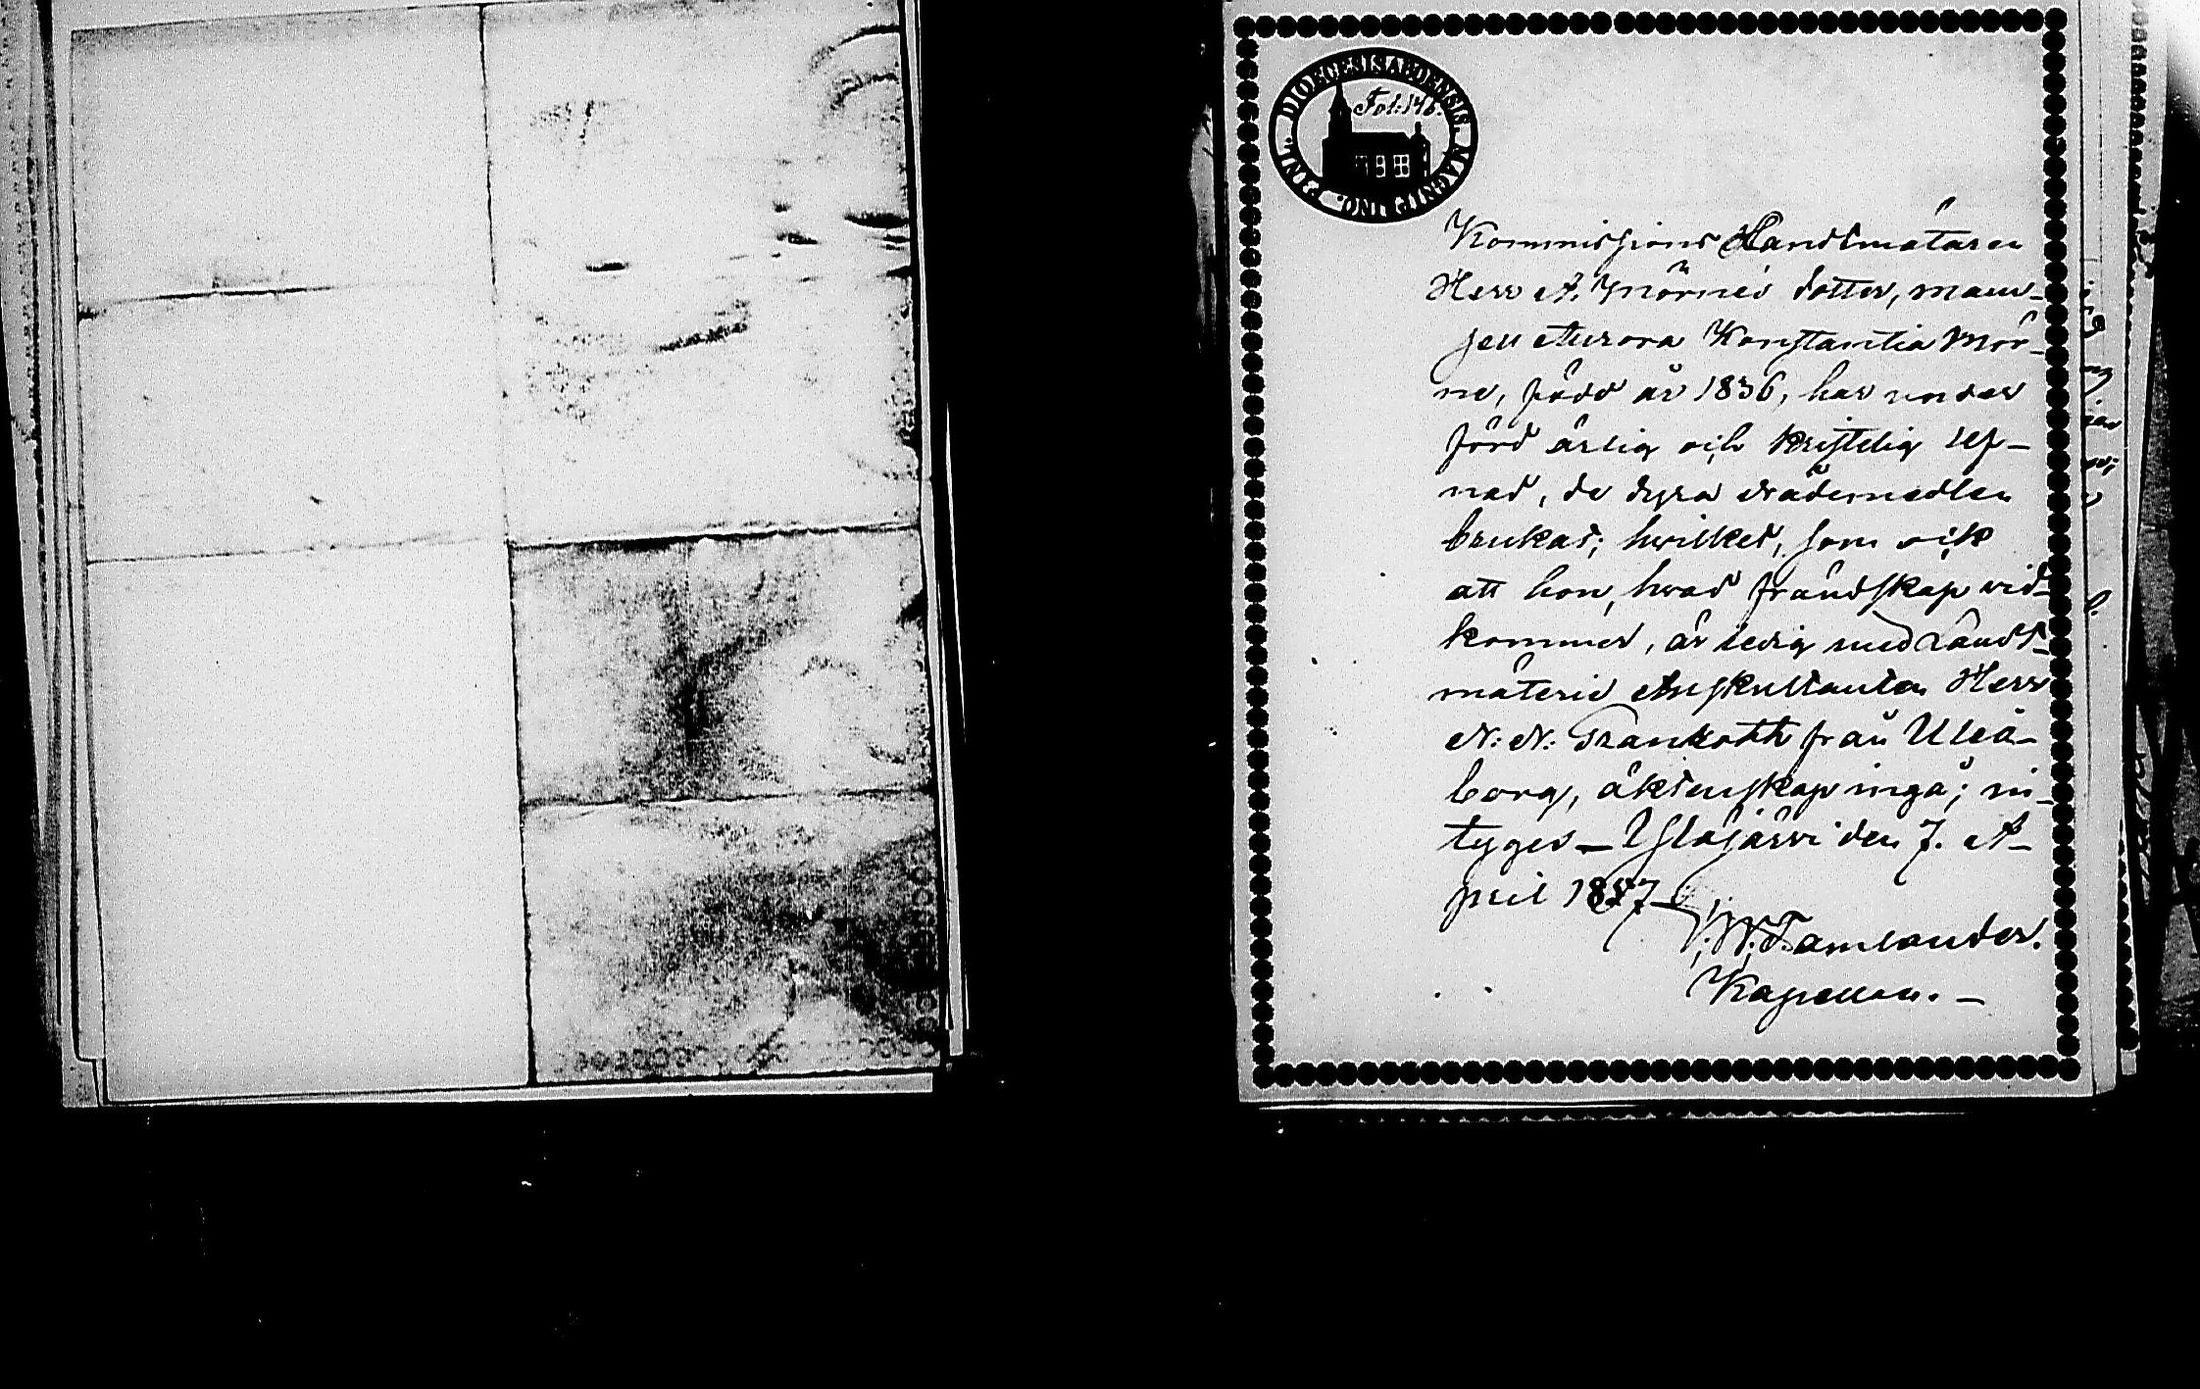 DIOECESIS ABOENSIS. MAGNI PR. INO. FINL.
Fol: 146.
Kommissions Landtmätaren
Herr A. Mörnes dotter, mam-
sell Aurora Konstantia Mör-
ne, född år 1836, har under
förd ärlig och kristelig lef-
nad, de dyra nådemedlen
brukat; hvilket, som ock
att hon, hvad frändskap vid-
kommer, är ledig med Landt-
mäterie Auskultanten Herr
N: N: från Uleå-
borg, äktenskap ingå; in-
tygas — Ylöjärvi den 7. A-
pril 1857
W: Tamlander.
Kapellan. —